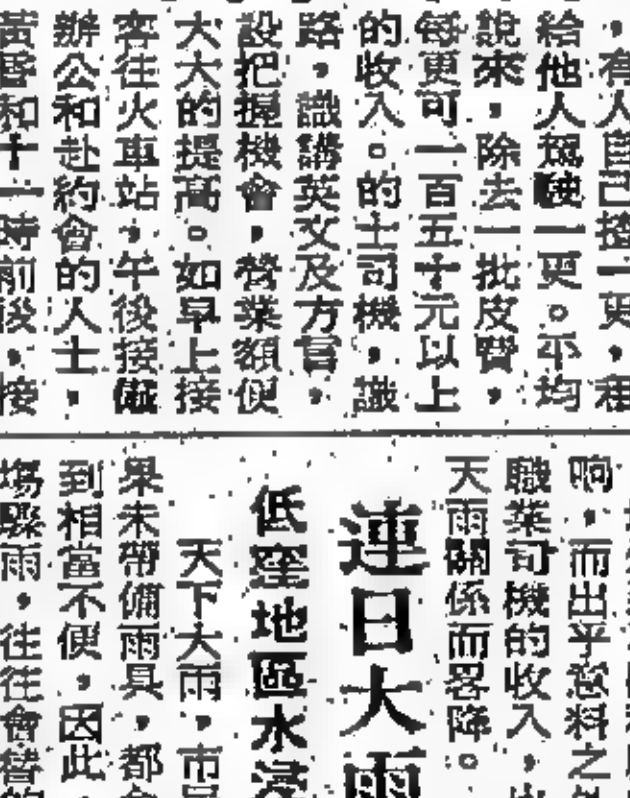 ，有人自己揸一更，
給他人駕駛一更。平均
說來，除去一批皮費，
每更可一百五十元以上
的收入。的士司機，識
路，識講英文及方言，
設把握機會，營業額便
大大的提高。如早上接
客往火車站，午後接
辦公和赴約會的人士，
黃昏和十一時前後，接
响，而出乎意料之
職業司機的收入，
天雨關係而畧降。
連日大雨
低窪地區水浸
天下大雨，市
果未帶備雨具，都
到相當不便，因此
場驟雨，往往會替